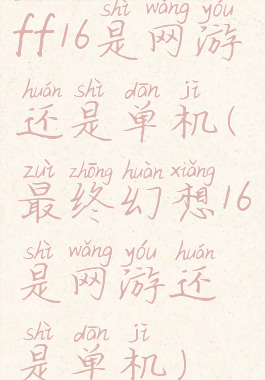 shì wǎng yóu
ff16是网游
huán shì dān jī
还是单机(
zuì zhōng huàn xiǎng
最终幻想16
shì wǎng yóu huán
是网游还
shì dān jī
是单机)